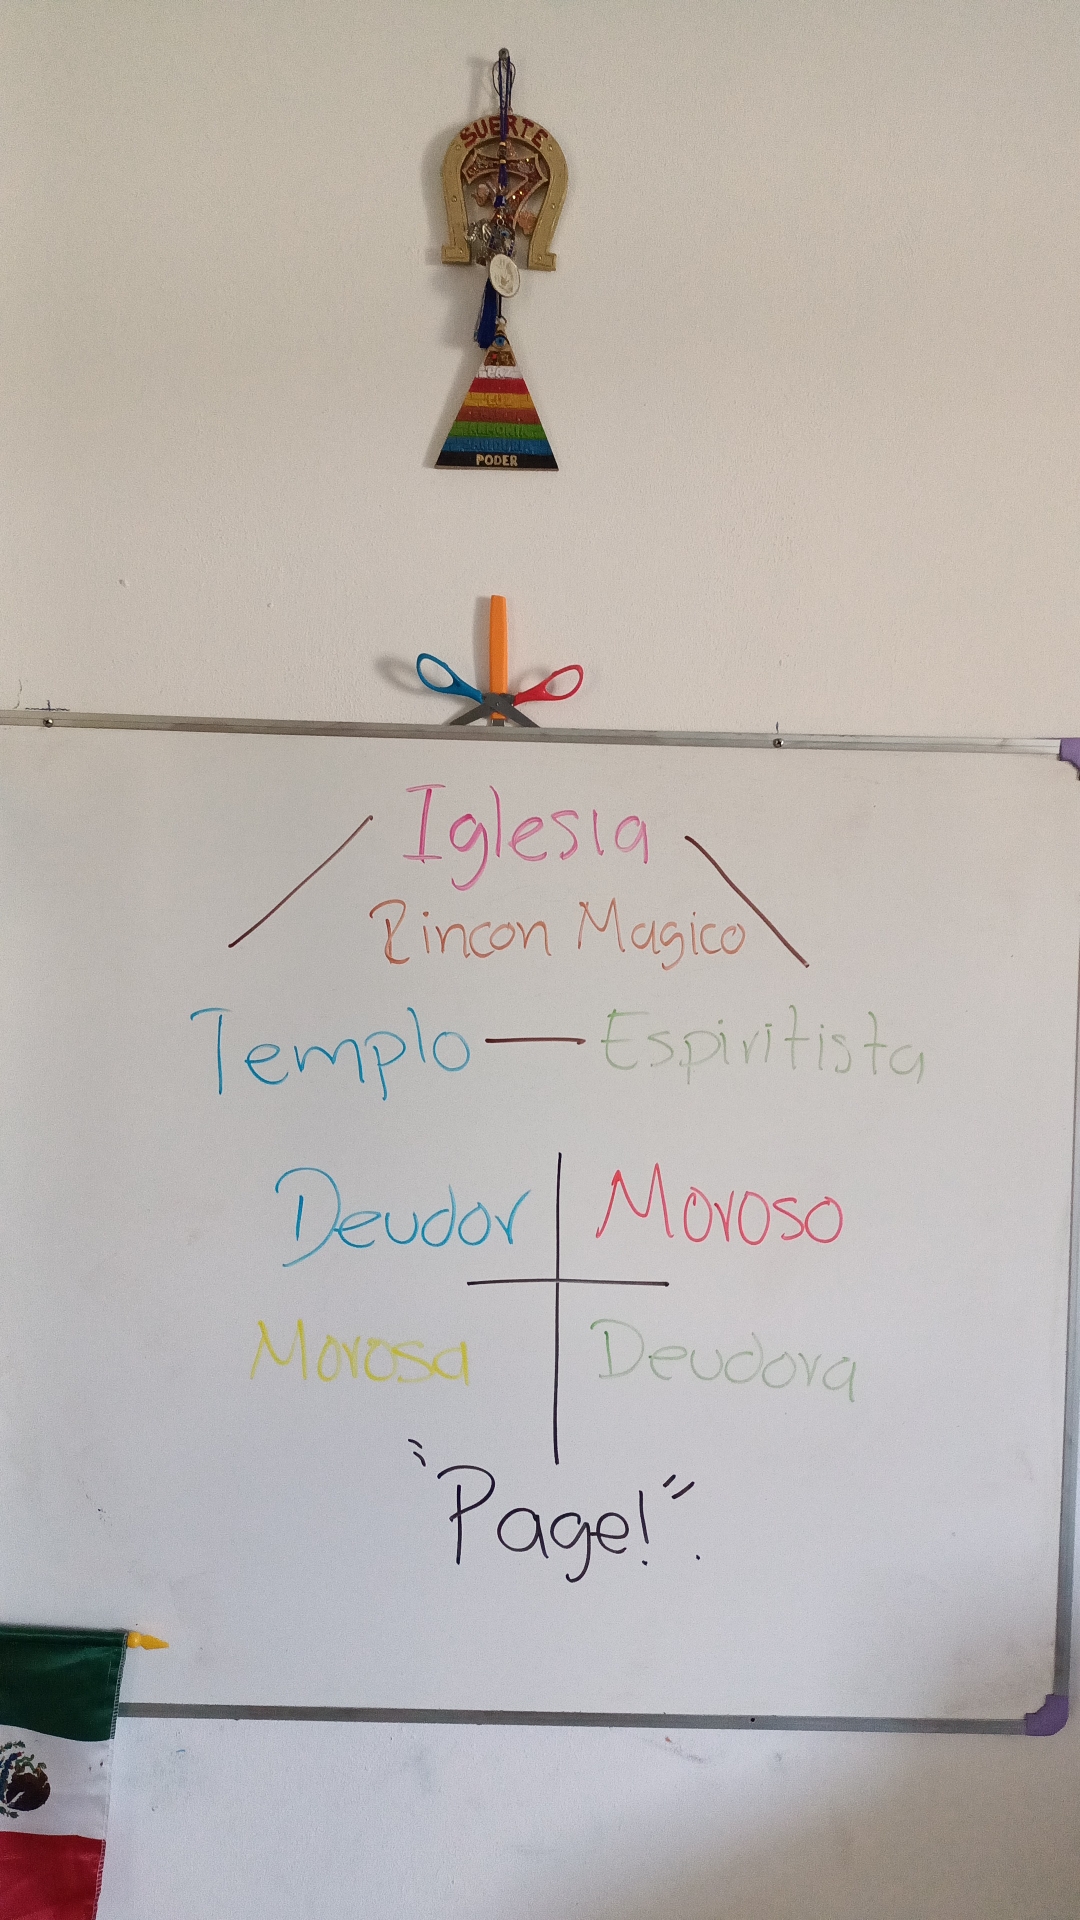 SUERTE
PODER
Iglesia
Rincon Magico
Templo — Espiritista
Deudor Moroso
Morosa Deudora
"Page!".